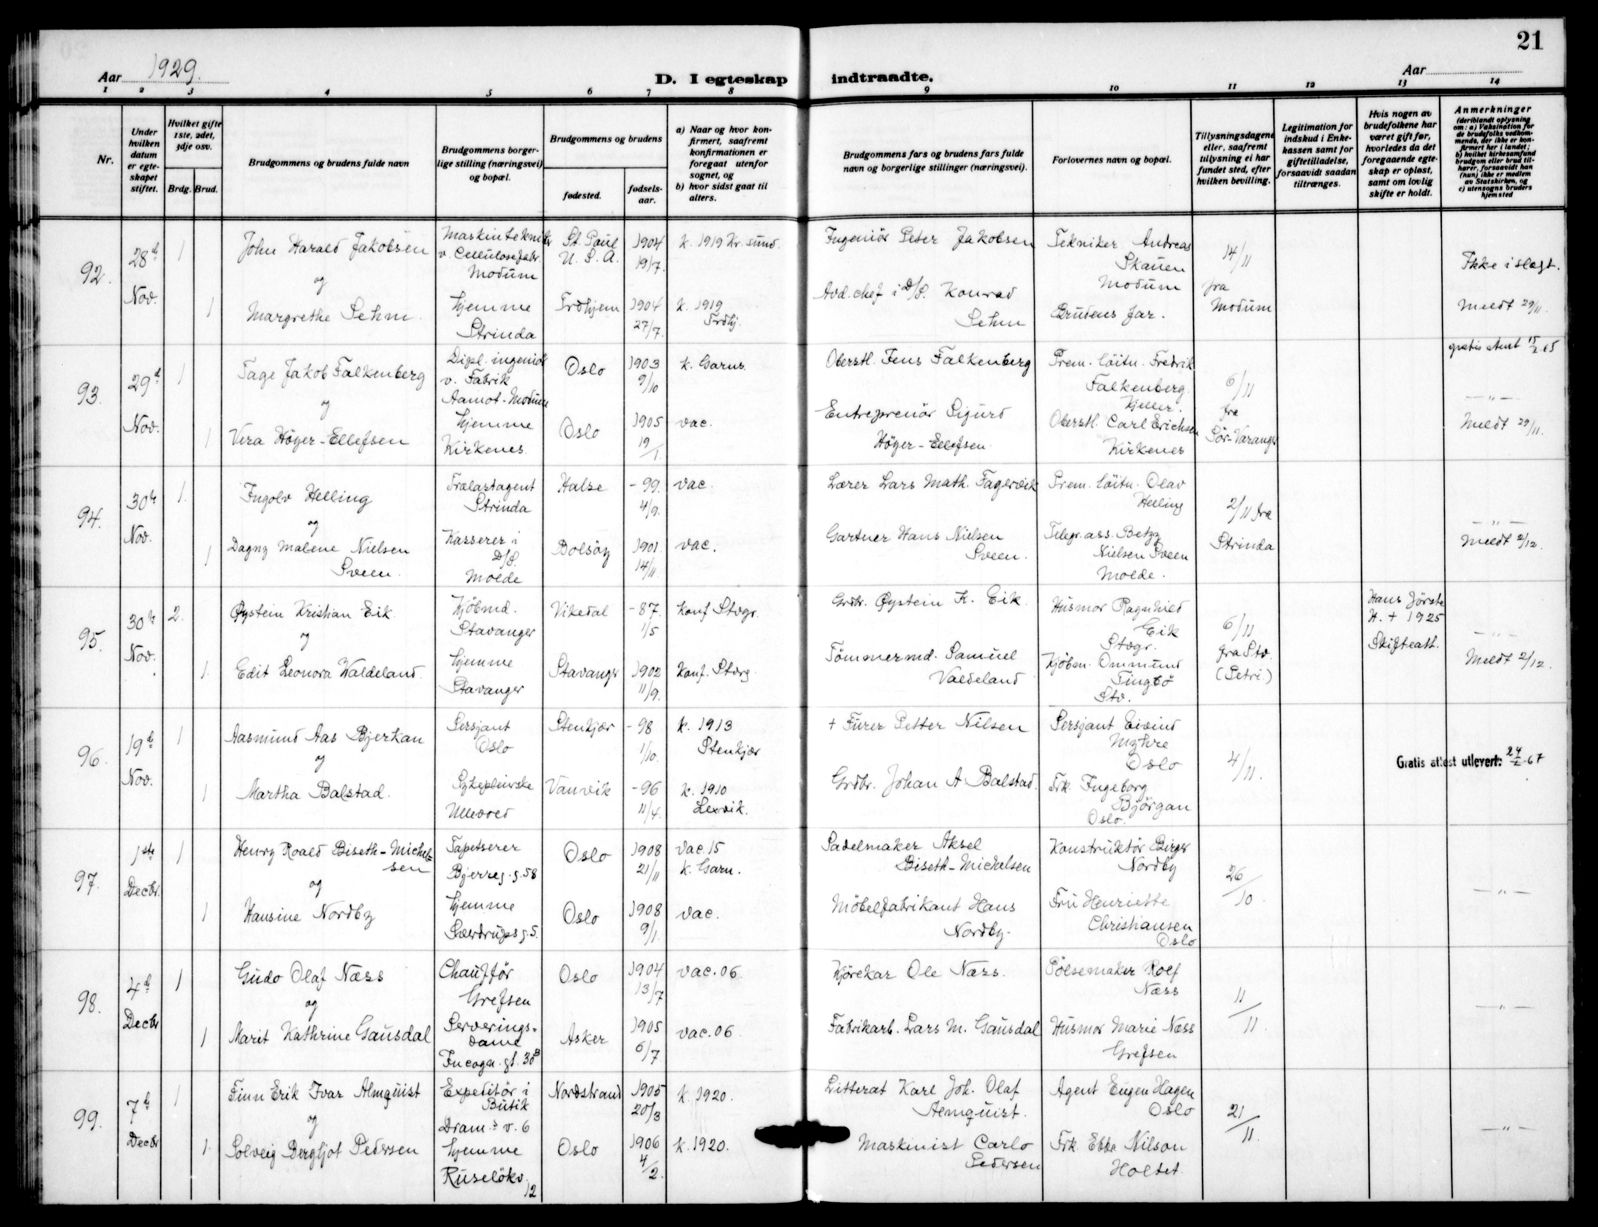 21
Aar 1929.
D. I egteskap indtraadte.
Aar
1 2 3 4 5 6 7 8 9 10 11 12 13 14
Nr.
Under hvilken datum er egteskapet stiftet.
Hvilket gifte 1ste, 2det, 3dje osv.
Brdg. Brud.
Brudgommens og brudens fulde navn
Brudgommens borgerlige stilling (næringsvei) og bopæl.
Brudgommens og brudens
fødested.
fødselsaar.
a) Naar og hvor konfirmert, saafremt konfirmationen er foregaat utenfor sognet, og
b) hvor sidst gaat til alters.
Brudgommens fars og brudens fars fulde navn og borgerlige stillinger (næringsvei).
Forlovernes navn og bopæl.
Tillysningsdagene eller, saafremt tillysning ei har fundet sted, efter hvilken bevilling.
Legitimation for indskud i Enkekassen samt for giftetilladelse, forsaavidt saadan tiltrænges.
Hvis nogen av brudefolkene har været gift før, hvorledes da det foregaaende egteskap er opløst, samt om lovlig skifte er holdt.
Anmerkninger
(deriblandt oplysning om: a) Vaksination for de brudefolks vedkommende, der ikke er konfirmert her i landet; b) hvilket kirkesamfund brudgom eller brud tilhører, forsaavidt han (hun) ikke er medlem av Statskirken, og c) utensogns bruders hjemsted
92.
28d Nov.
1
John Harald Jakobsen
og
1
Margrethe Sehm.
Maskintekniker
v. Cellulosefabr.
Modum
Hjemme
Strinda
St. Paul
U. S. A.
Trdhjem
1904
19/7.
1904
27/7.
k. 1919 Kr.sund.
k. 1919
Trdhj.
Ingeniør Peter Jakobsen
Avd. chef i D/S. Konrad
Sehm
Tekniker Andreas
Skauen
Modum
Brudens far.
14/11
fra
Modum
Ikke i slegt.
Meldt 29/11.
93.
29d Nov.
1
Tage Jakob Falkenberg
og
1
Vera Høyer-Ellefsen
Dipl. ingeniør
v. Fabrik
Aamot-Modum
Hjemme
Kirkenes
Oslo
Oslo
1903
9/10
1905
19/1
k. Garns.
vac.
Oberstl. Jens Falkenberg
Entreprenør Sigurd
Høyer-Ellefsen.
Prem. løitn. Fredrik
Falkenberg
Kjeller.
Oberstl. Carl Erichsen
Kirkenes
6/11
fra
Sør-Varang.
gratis attest 15/2 65
— „ —
Meldt 29/11.
94.
30te Nov.
1.
Ingolv Helling
og
1
Dagny Malene Nielsen
Sveen.
Trælastagent
Strinda
Kasserer i
D/S.
Molde
Halse
Bolsøy
- 99.
4/9.
1901.
14/11
vac.
vac.
Lærer Lars Math. Fagervik
Gartner Hans Nielsen
Sveen.
Prem. løitn. Olav
Helling
Telegr. ass. Betzy
Nielsen Sveen
Molde.
2/11 fra
Strinda
— „ —
Meldt 2/12.
95
30te Nov.
2.
Øystein Kristian Eik.
og
1.
Edit Leonora Valdeland.
Kjøbmd.
Stavanger
Hjemme
Stavanger
Vikedal
Stavanger
- 87.
1/5
1902
11/9.
Konf. Stvgr.
Konf. Stvrg.
Grdbr. Øystein K. Eik.
Tømmermd. Samuel
Valdeland
Husmor Ragnhild
Eik
Stvgr.
Kjøbm. Ommund
Tingbø
Stv.
6/11
fra Stv.
(Petri)
H. + 1925
Skifteatt.
— „ —
Meldt 2/12.
96.
19d Nov.
1
Aasmund Aas Bjerkan
og
1
Martha Balstad.
Sersjant
Oslo
Sykepleierske
Ullevold
Stenkjær
Vanvik
- 98
1/10.
- 96
11/4.
k. 1913
Stenkjær
k. 1910
Lexvik.
+ Furer Petter Nilsen
Grdbr. Johan A Balstad.
Sersjant Eivind
Myhre
Oslo
Frk. Ingeborg
Bjørgan
Oslo.
4/11.
Gratis attest utlevert: 24/2-67
97.
1ste Decbr.
1
Henry Roald Biseth-Michelsen
og
1
Hansine Nordby
Tapetserer
Bjerreg.g. 58
Hjemme
Sverdrups g. 5.
Oslo
Oslo
1908
21/11
1908
9/1.
Vac 15
k. Garn.
vac.
Sadelmaker Aksel
Biseth-Michelsen
Møbelfabrikant Hans
Nordby.
Konstruktør Birger
Nordby
Fru Henriette
Christiansen
Oslo
26/10
— „ —
98.
4d Decbr
1
Gudo Olaf Næss
og
1
Marit Kathrine Gausdal
Chauffør
Grefsen
Serveringsdame
Incogn. gt. 30B
Oslo
Asker
1904
13/7
1905
6/7
vac. 06.
vac. 06
Kjørekar Ole Næss.
Fabrikarb. Lars M. Gausdal
Pølsemaker Rolf
Næss
Husmor Marie Næss
Grefsen
11/11.
— „ —
99.
7d Decbr
1
Finn Erik Ivar Almquist
og
1.
Solveig Bergljot Pedersen
Expeditør i
Butik
Dram.s v. 6
Hjemme
Ruseløkv. 12
Nordstrand
Oslo
1905
20/3
1906
4/2.
k. 1920.
k. 1920.
Litterat Karl Joh. Olaf
Almquist.
Maskinist Carlo
Pedersen
Agent Eugen Hagen
Oslo
Frk. Ebba Nilson
Holtet
21/11.
— „ —